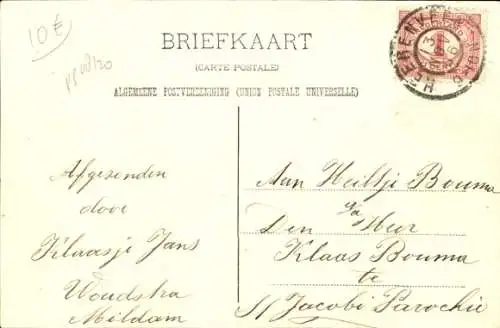 10 €
BRIEFKAART
(CARTE POSTALE)
ALGEMEENE POSTVEREENIGING (UNION POSTALE UNIVERSELLE)
HEERENVEEN
Afgezonden
door
Klaasje Jans
Woudstra
Mildam
Aan Heiltji Bouma
p/a
Den Heer
Klaas Bouma
te
St Jacobi Parochie